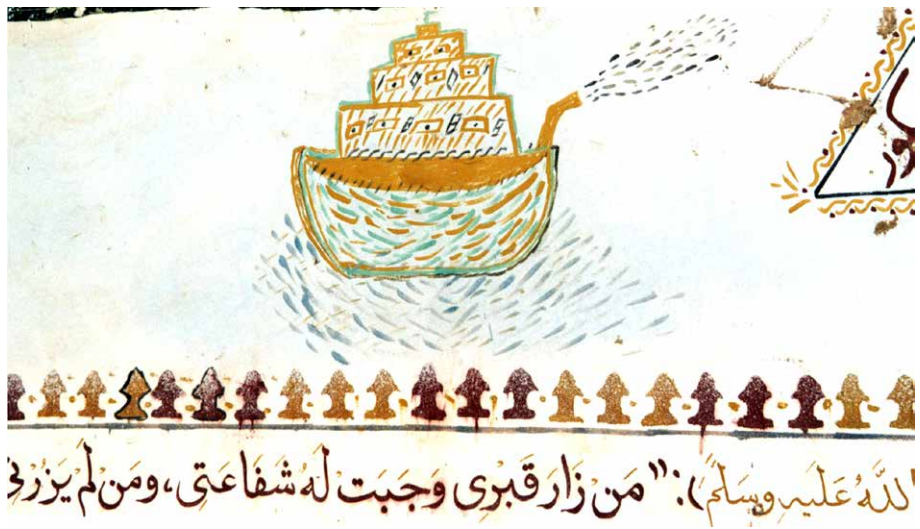 اللَّهُ عَلَيهِ وسَلمَ): "مَنْ زَارَ قَبرِى وَجَبَت لَهُ شَفَاعَتِى، ومَنْ لَمْ يَزُرْنِى